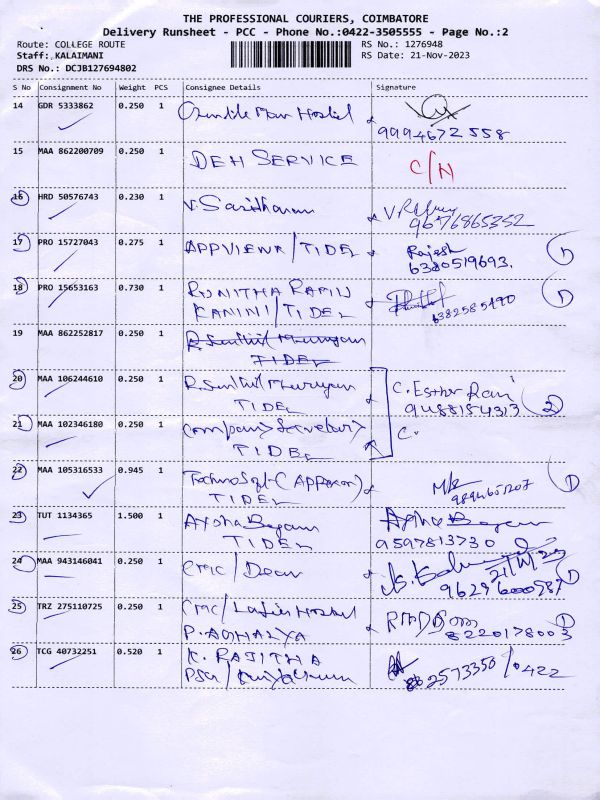 THE PROFESSIONAL COURIERS, COIMBATORE
Delivery Runsheet - PCC - Phone No.:0422-3505555 - Page No.:2
Route: COLLEGE ROUTE
Staff: KALAIMANI
DRS No.: DCJB127694802
RS No.: 1276948
RS Date: 21-Nov-2023
S No Consignment No Weight PCS Consignee Details Signature
14 GDR 5333862 0.250 1 Hostel
9994672558
15 MAA 862200709 0.250 1 DEH SERVICE C/N
16 HRD 50576743 0.230 1 V. Saritharan
9676865352
17 PRO 15727043 0.275 1 APPVIEWX/TIDEL Rajesh
6380519693. 1
18 PRO 15653163 0.730 1
KANINI/TIDEL 1
19 MAA 862252817 0.250 1 R. Senthil Murugan
TIDEL
20 MAA 106244610 0.250 1 R. Senthil Murugan C. Esther Rani
TIDEL 9488184313 2
21 MAA 102346180 0.250 1 Company Secretary C.
TIDEL
22 MAA 105316533 0.945 1
TIDEL 1
23 TUT 1134365 1.500 1 Aysha Begam
TIDEL 9597813730
24 MAA 943146041 0.250 1 CMC/Dean 21/11/23
1
25 TRZ 275110725 0.250 1 CMC/Ladies Hostel 1
8220178003
26 TCG 40732251 0.520 1 K. RAJITHA
2573350 0422